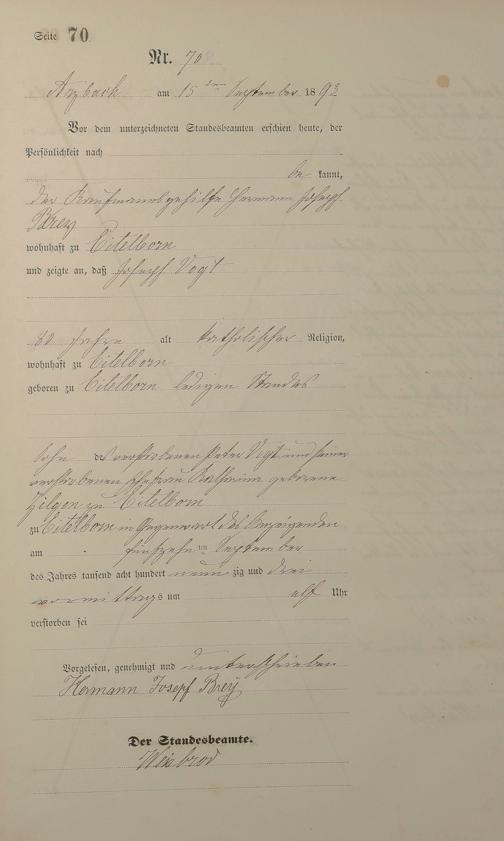 Seite 70
Nr. 70
Arzbach am 15 ten September 1893
Vor dem unterzeichneten Standesbeamten erschien heute, der
Persönlichkeit nach
be kannt,
der Kaufmannsgehilfe Hermann Joseph
Brey
wohnhaft zu Eitelborn
und zeigte an, daß Joseph Vogt
80 Jahre alt katholischer Religion,
wohnhaft zu Eitelborn
geboren zu Eitelborn ledigen Standes
Sohn des verstorbenen Peter Vogt und seiner
verstorbenen Ehefrau Katharina geborene
Hilgen zu Eitelborn
zu Eitelborn in Gegenwart des Anzeigenden
am fünfzehn ten September
des Jahres tausend acht hundert neun zig und drei
vormittags um elf Uhr
verstorben sei
Vorgelesen, genehmigt und unterschrieben
Hermann Josepf Brey
Der Standesbeamte.